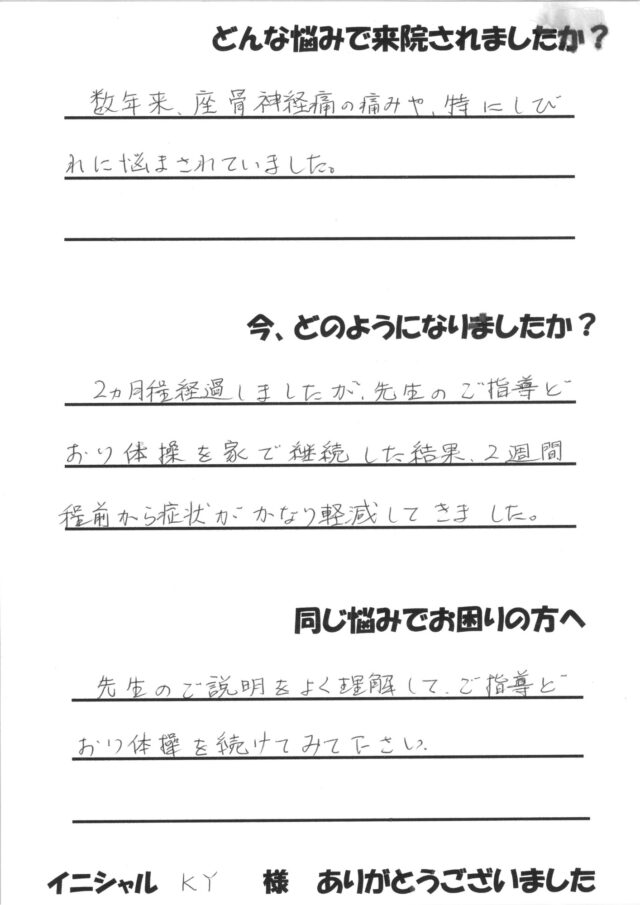 どんな悩みで来院されましたか？
数年来、座骨神経痛の痛みや、特にしび
れに悩まされていました。
今、どのようになりましたか？
2ヵ月程経過しましたが、先生のご指導ど
おり体操を家で継続した結果、2週間
程前から症状がかなり軽減してきました。
同じ悩みでお困りの方へ
先生のご説明をよく理解して、ご指導ど
おり体操を続けてみて下さい。
イニシャル KY 様 ありがとうございました